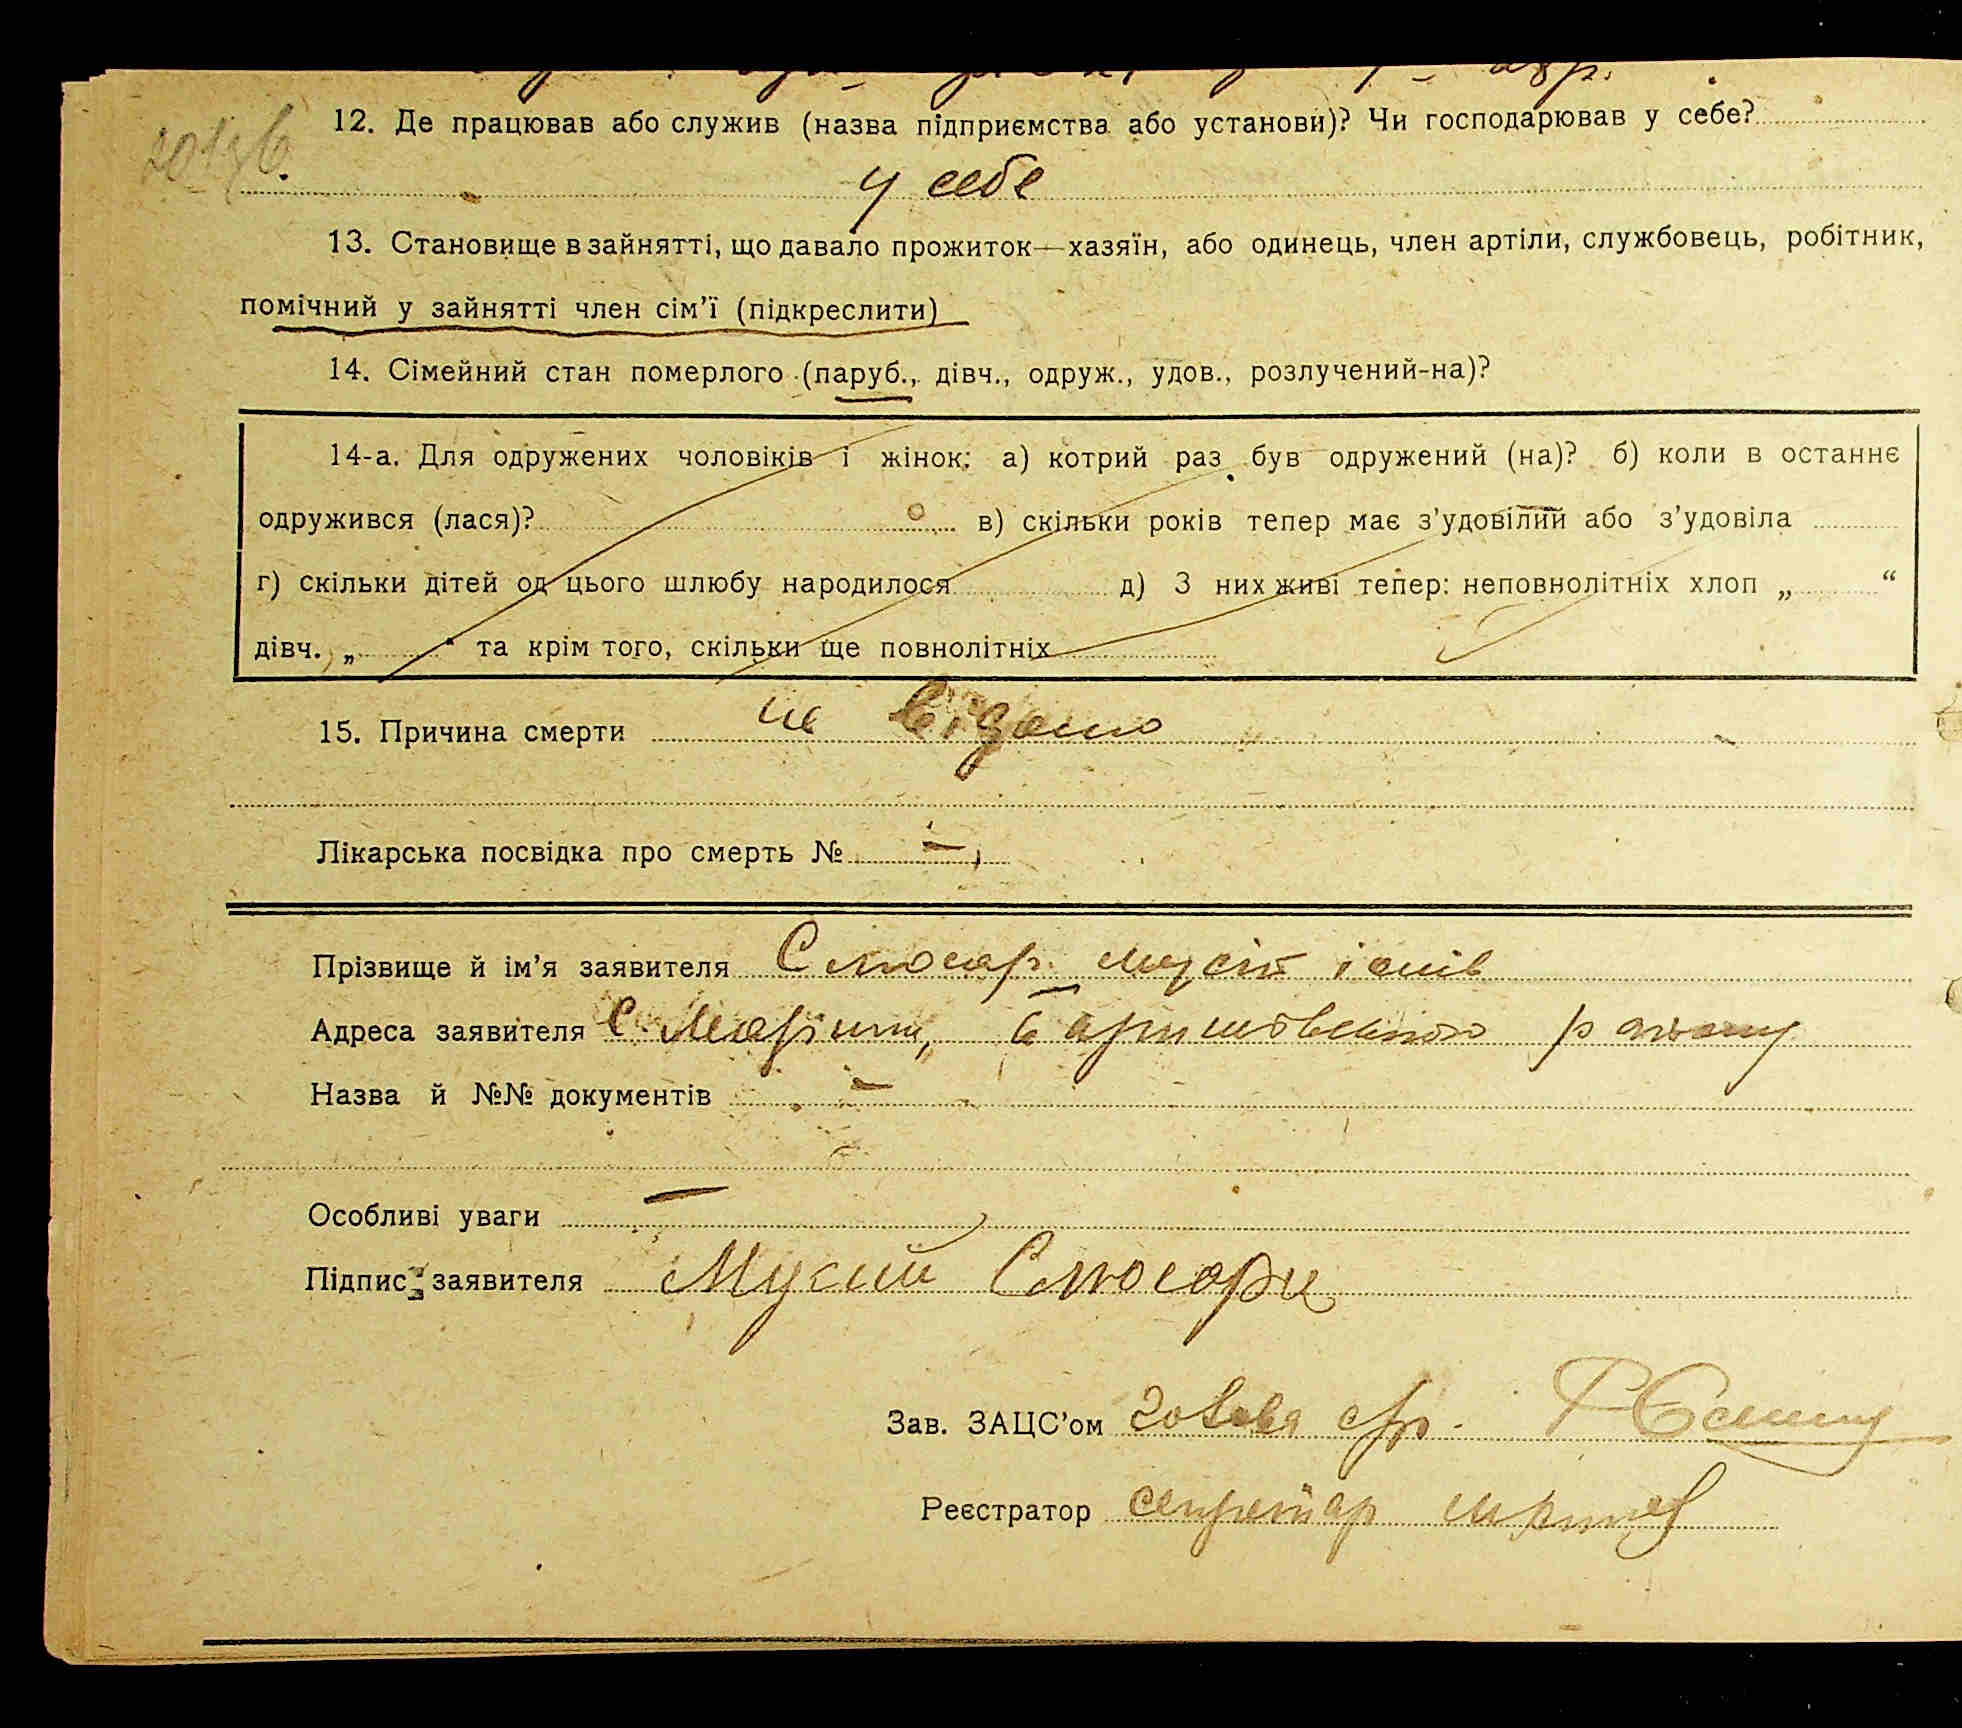 12. Де працював або служив (назва підприємства або установи)? Чи господарював у себе?
у себе
13. Становище в зайнятті, що давало прожиток—хазяїн, або одинець, член артіли, службовець, робітник,
помічний у зайнятті член сім’ї (підкреслити)
14. Сімейний стан померлого (паруб., дівч., одруж., удов., розлучений-на)?
14-а. Для одружених чоловіків і жінок: а) котрий раз був одружений (на)? б) коли в останнє
одружився (лася)? в) скільки років тепер має з’удовілий або з’удовіла
г) скільки дітей од цього шлюбу народилося д) З них живі тепер: неповнолітніх хлоп „ “
дівч. „ “ та крім того, скільки ще повнолітніх
15. Причина смерти не відомо
Лікарська посвідка про смерть № —
Прізвище й ім’я заявителя Слюсар Мусій
Адреса заявителя С. баришовського району
Назва й №№ документів —
Особливі уваги —
Підпис заявителя Мусий Слюсарь
Зав. ЗАЦС’ом голова с/р.
Реєстратор секретар